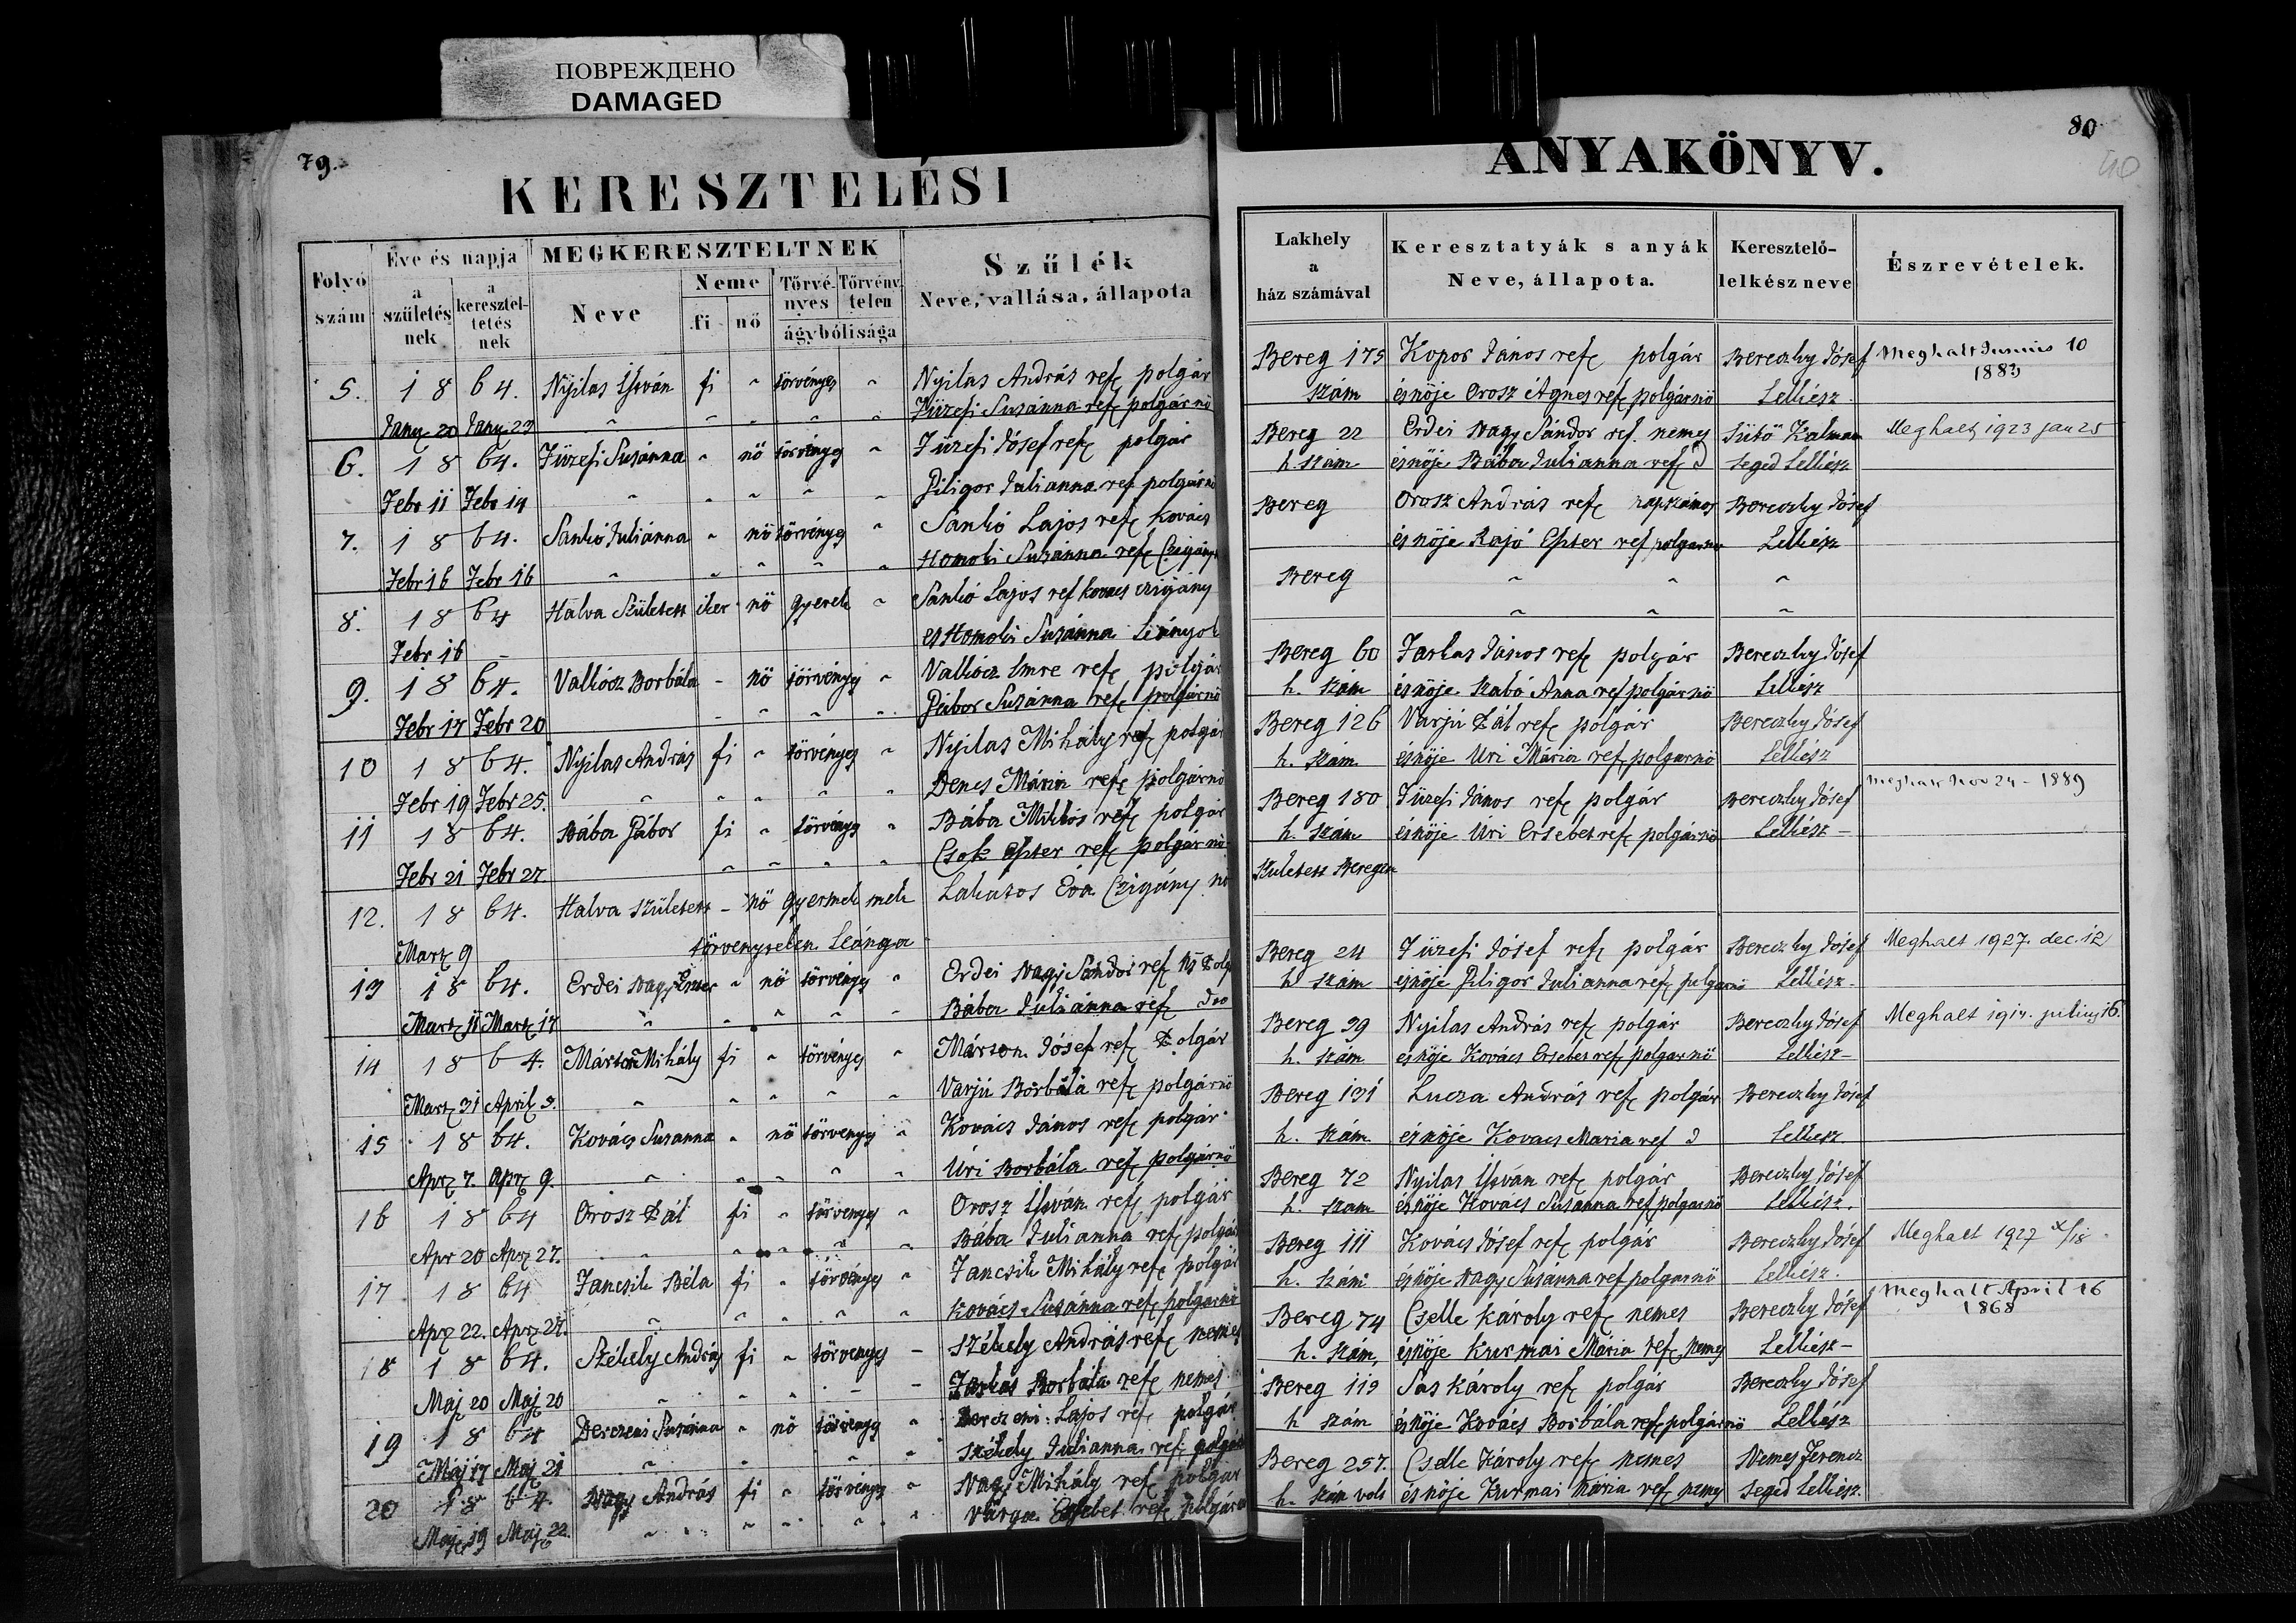 ПОВРЕЖДЕНО
DAMAGED
79.
KERESZTELÉSI
Folyó szám
Éve és napja
a születés nek
a keresztel- tetés nek
MEGKERESZTELTNEK
Neve
Neme
fi
nő
Törvé- nyes
Törvény telen
ágybólisága
Szűlék
Neve, vallása, állapota
5. 18 64. Nyilas István fi " törvényes " Nyilas András ref polgár
Janu 20 Janu 23 " " " " " Füzesi Susánna ref polgárnö
6. 18 64. Füzesi Susánna " nö törvényes " Füzesi Jósef ref polgár
Febr 11 Febr 14 " " " " " Piligor Julianna ref polgárnö
7. 18 64. Sankó Juliánna " nö törvényes " Sankó Lajos ref kovács
Febr 16 Febr 16 " " " " " Homoki Susánna ref Czigány
8. 18 64 Halva Született iker nö gyerek " Sankó Lajos ref kovacs czigány
Febr 16 - es Homoki Susánna Leányok
9. 18 64. Vallócz Borbála - nö törvényes " Vallócz Imre ref polgár
Febr 17 Febr 20 - " " " " Gábor Susánna ref polgárnö
10 18 64. Nyilas András fi " törvényes " Nyilas Mihály ref polgár
Febr 19 Febr 25. " " " " " Denes Mária ref polgárnö
11 18 64. Bába Gábor fi " törvényes " Bába Miklós ref polgár
Febr 21 Febr 27 " " " " Csok Eszter ref polgárnö
12. 18 64. Halva született - nö gyermek mek Lakatos Éva Czigány nö
Marz 9 törvenytelen Leánya
13 18 64. Erdei Nagy Eszter " nö törvényes " Erdei Nagy Sándor ref
Marz 11 Marz 17 " " " " " Bába Juliánna ref
14 18 64. Márton Mihály fi " törvényes " Márton Jósef ref Polgár
Marz 31 April 3. " " " " " Varjú Borbála ref polgárnö
15 18 64. Kovács Susanna " nö törvényes " Kovács János ref polgár
Apr 7. apr 9. " " " " " Úri Borbála ref polgárnö
16 18 64 Orosz Pál fi " törvenyes " Orosz István ref polgár
Apr 20 Apr 27. " " " " " Bába Julianna ref polgár
17 18 64 Jancsik Béla fi " törvényes " Jancsik Mihály ref polgár
Apr 22. Apr 27. " " " " " Kovács Susánna ref polgárnö
18 18 64. Székely András fi " törvenyes - Székely András ref nemes
Maj 20 Maj 20 " " " - - Farkas Borbála ref nemes
19 18 64 Derczeni Susánna " nö törvényes " Derczeni Lajos ref polgár
Máj 17 Maj 21 " " " " Székely Julianna ref polgár
20 18 64. Nagy András fi " törvényes " Nagy Mihály ref polgár
Maj 19 Maj 22. " " " " " Varga Ersebet ref polgárnö
80
40
ANYAKÖNYV.
Lakhely a ház számával
Keresztatyák s anyák Neve, állapota.
Keresztelő- lelkész neve
Észrevételek.
Bereg 175 Kopor János ref polgár Bereczky Jósef Meghalt Junius 10
szám és nöje Orosz Ágnes ref polgárnö Lelkész 1883
Bereg 22 Erdei Nagy Sándor ref. nemes Sütö Kalman Meghalt, 1923 jan 25
h. szám és nöje Bába Julianna ref segéd Lelkész
Bereg Orosz András ref napszámos Bereczky Jósef
és nöje Kajó Eszter ref polgarnö Lelkész
Bereg " " "
" " "
Bereg 60 Farkas János ref polgár Bereczky Jósef
h. szám és nöje Szabó Anna ref polgárnö Lelkész
Bereg 126 Varjú Pál ref polgár Bereczky Jósef
h. szám és nöje Uri Mária ref polgarnö Lelkész
Bereg 180 Füzesi János ref polgár Bereczky Jósef meghalt Nov 24 - 1889
h. szám és nöje Úri Ersébet ref polgárnö Lelkész -
Született Beregen
Bereg 24 Füzesi Jósef ref polgár Bereczky Jósef Meghalt 1927. dec. 12
h szám és nöje Piligor Julianna ref polgarnö Lelkész.
Bereg 39 Nyilas András ref polgár Bereczky Jósef Meghalt 1917. julius 16.
h. szám es nöje Kovács Ersebet ref polgarnö Lelkész -
Bereg 131 Lucza András ref polgár Bereczky Jósef
h. szám és nöje Kovacs Maria ref Lelkesz
Bereg 72 Nyilas István ref polgár Bereczky Jósef
h. szam és nöje Kovács Susanna ref polgarnö Lelkész.
Bereg 111 Kovács Jósef ref polgár Bereczky Jósef Meghalt 1927 X/18
h. szám és nöje Nagy Susánna ref polgarnö Lelkész.
Bereg 74 Cselle Károly ref nemes Bereczky Jósef Meghalt April 16
h. szám, és nöje Kurmai Mária ref nemes Lelkész - 1868
Bereg 119 Sas Károly ref polgár Bereczky Jósef
h szám és nöje Kovács Borbála ref polgárnö Lelkész
Bereg 257. Cselle Károly ref nemes Nemes Ferencz
h. szám volt és nöje Kurmai Mária ref nemes segéd Lelkész.